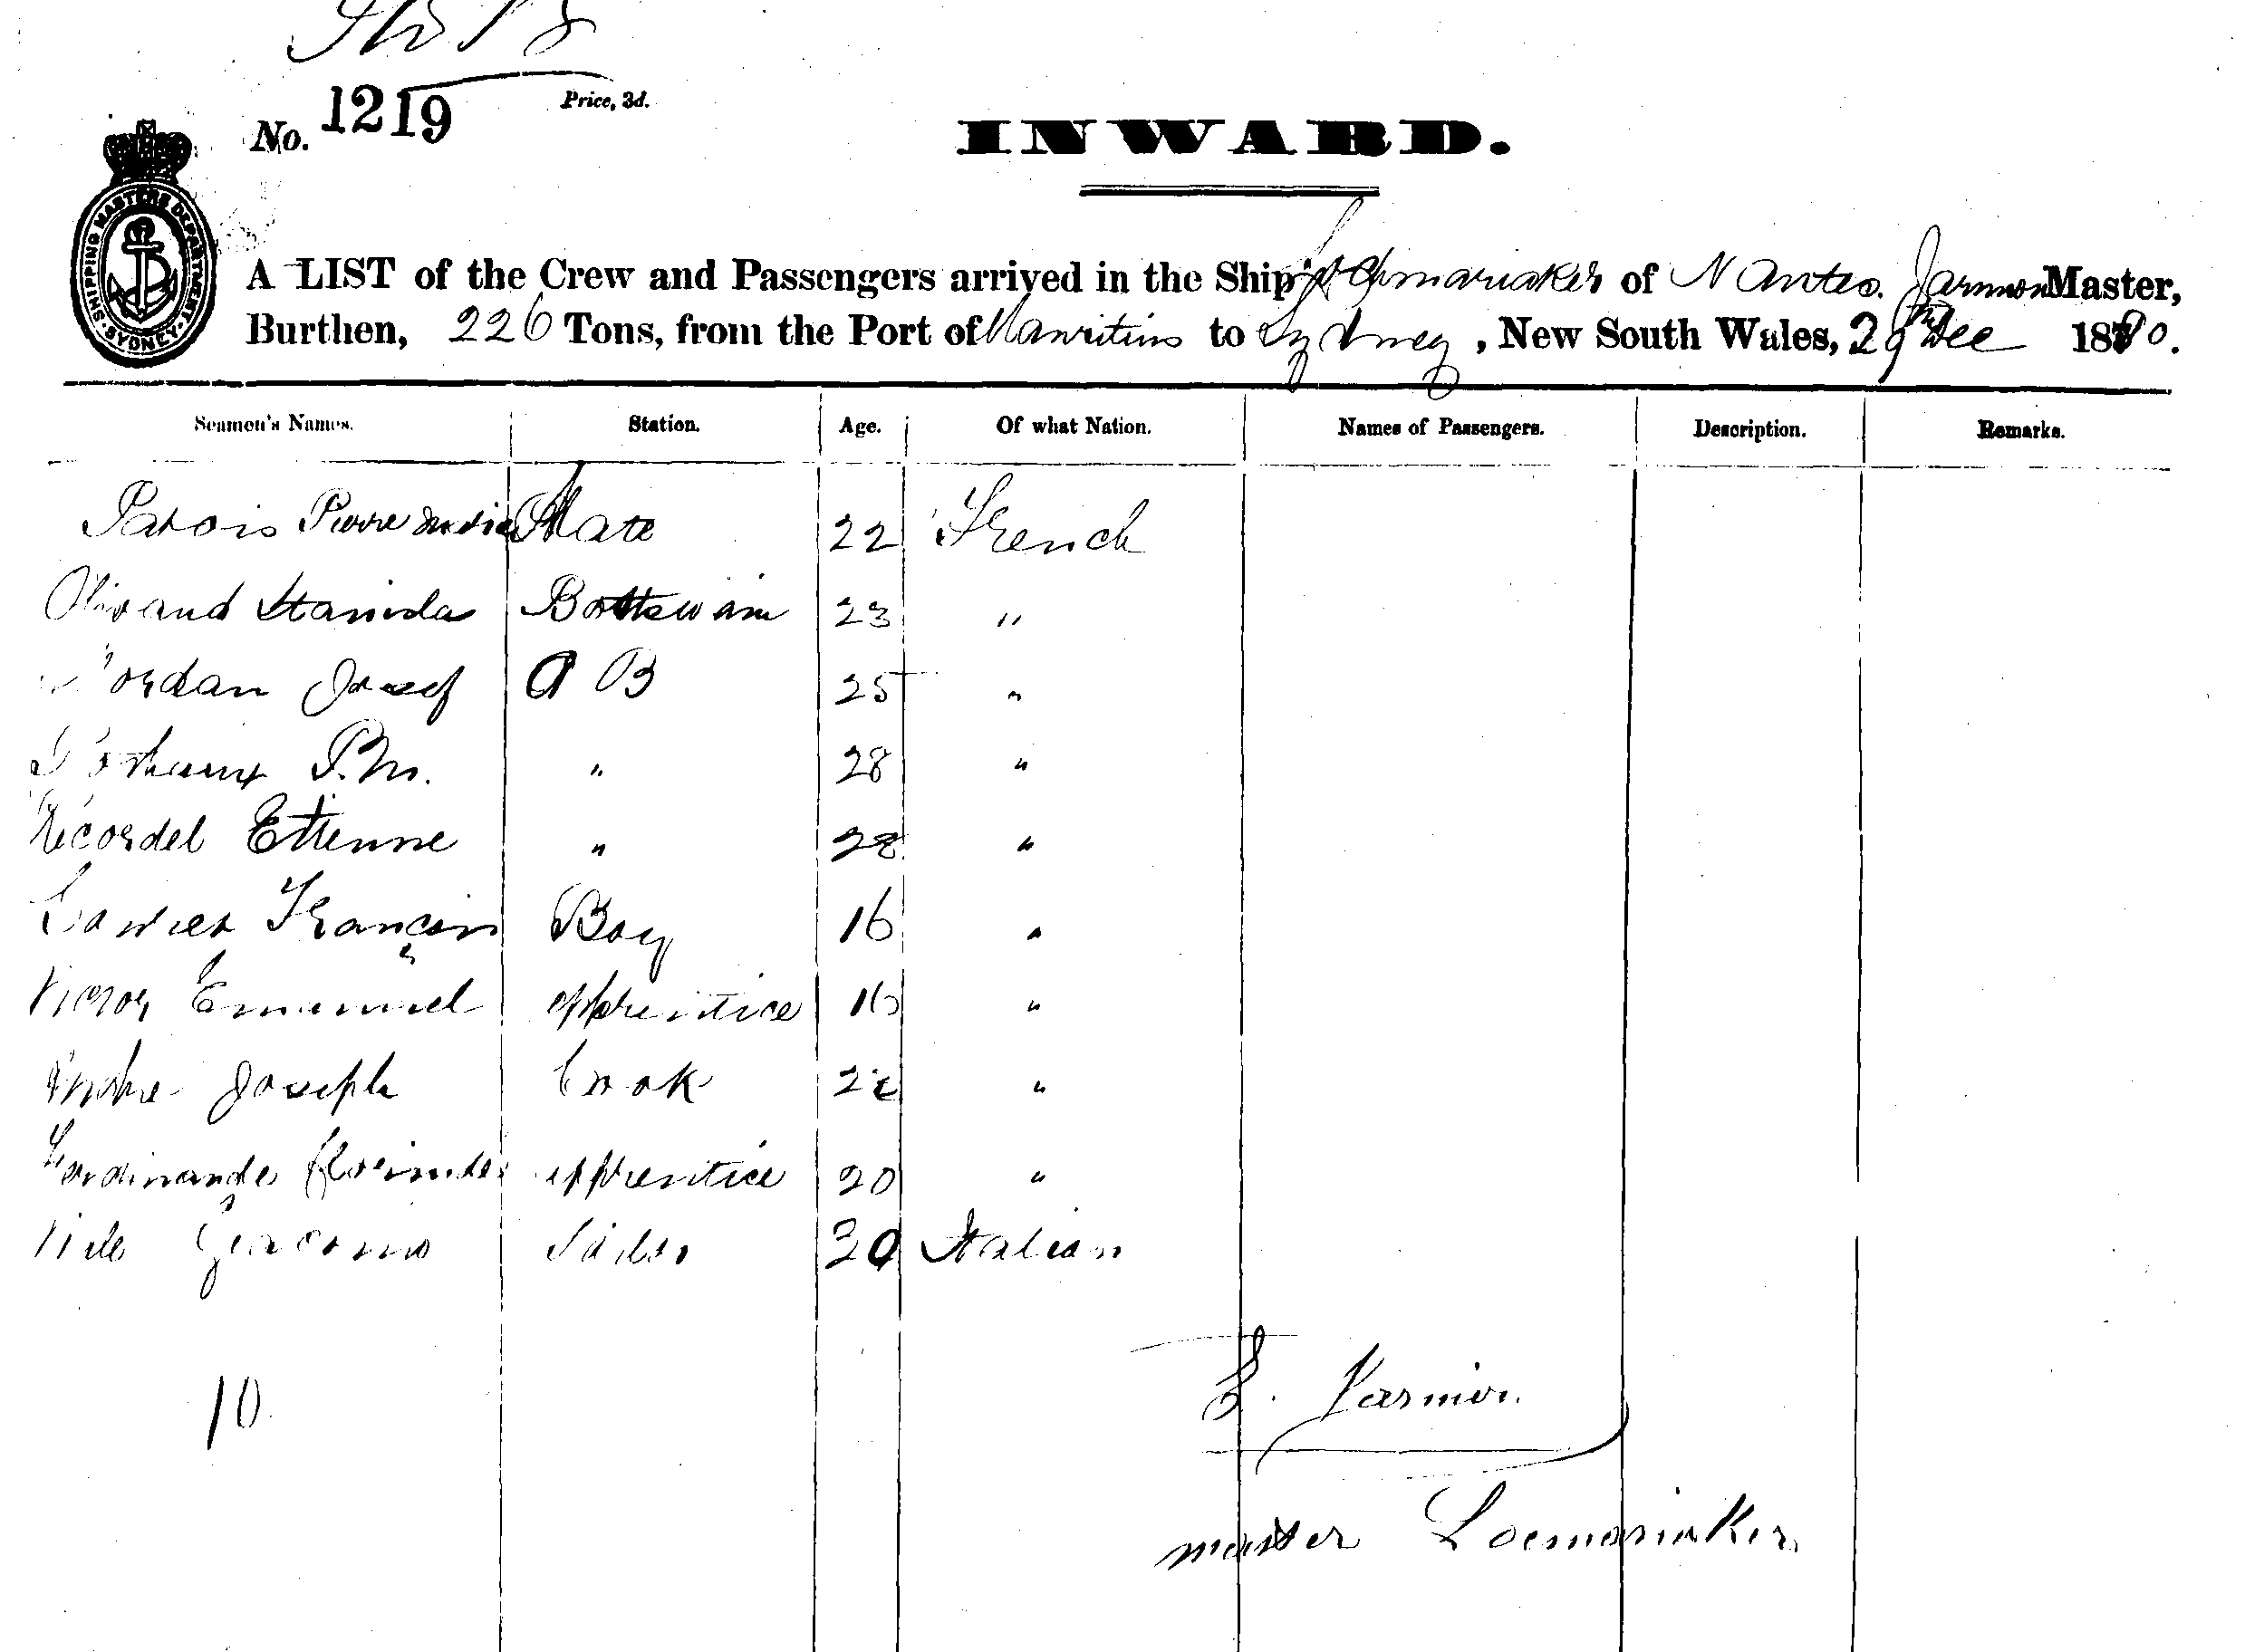 No. 1219 Price, 3d.
INWARD.
SHIPPING MASTERS DEPARTMENT SYDNEY
A LIST of the Crew and Passengers arrived in the Ship Locmariaker of Nantes. Jarmion Master,
Burthen, 226 Tons, from the Port of Mauritius to Sydney, New South Wales, 29th Dec 1880.
Seamen's Names. Station. Age. Of what Nation. Names of Passengers. Description. Remarks.
Patois Pierre Marie Mate 22 French
Olivaud Stanislas Boatswain 23 "
Jordan Josef A B 25 "
P.M. " 28 "
Recordel Etienne " 28 "
François Boy 16 "
Victor Emanuel apprentice 16 "
Andre Joseph Cook 22 "
Ferdinande apprentice 20 "
Giacomo Sailor 30 Italian
10
Jarmion
master Locmariaker